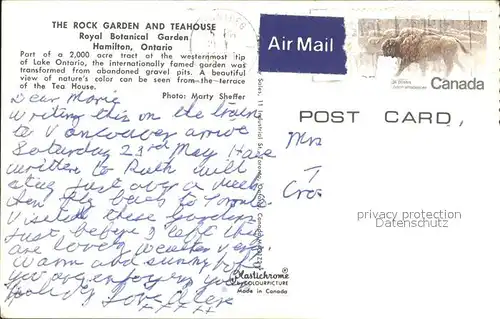 THE ROCK GARDEN AND TEAHOUSE
Royal Botanical Garden
Hamilton, Ontario
Part of a 2,000 acre tract at the westernmost tip
of Lake Ontario, the internationally famed garden was
transformed from abandoned gravel pits. A beautiful
view of nature's color can be seen from the terrace
of the Tea House.
Photo: Morty Sheffer
Dear Marie
writing this on the train
to Vancouver arrive
Saturday 23rd May Have
written to Ruth will
stay just over a week
then fly back to Toronto
Visited these gardens
just before I left they
are lovely weather very
warm and sunny hope
you are enjoying your
holiday Love
x x x x
Plastichrome
by COLOURPICTURE
Made in Canada
Air Mail
Canada
POST CARD
Mrs
T
Cro
privacy protection
Datenschutz